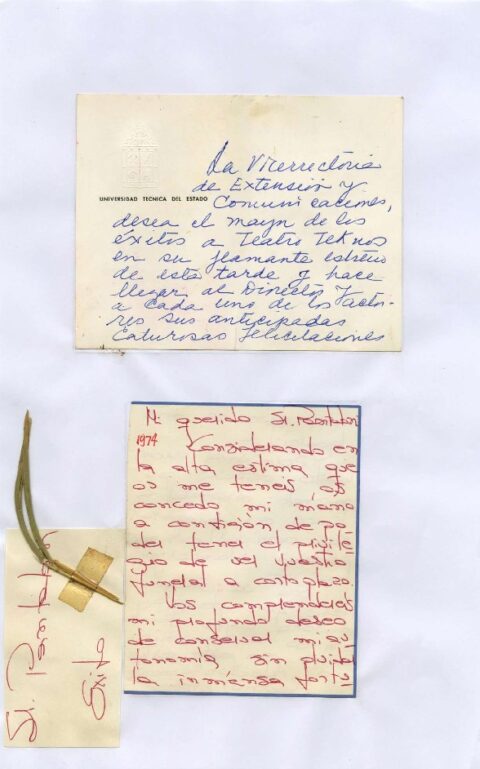 UNIVERSIDAD TECNICA DEL ESTADO
La Vicerrectoria
de Extensión y
Comunicaciones,
desea el mayor de los
éxitos a Teatro Teknos
en su flamante estreno
de esta tarde y hace
llegar al Director y
a cada uno de los acto-
res sus anticipadas
calurosas felicitaciones
Mi querido Sr. Pantaleón
1974
Considerando en
la alta estima que
os me teneis os
concedo mi mano
a condición de po
der tener el privile
gio de ser vuestro
funeral a corto plazo.
Vos comprendereis
mi profundo deseo
de conservar mi au
tonomía sin
la inmensa fortu
Sr. Pantaleón
Exito